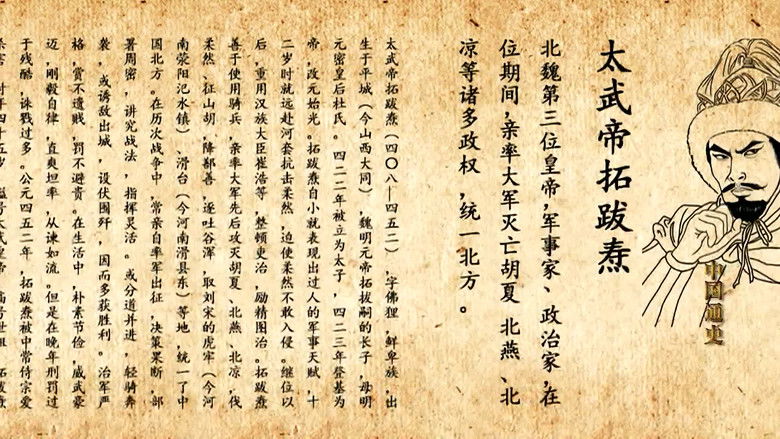 中国通史
太武帝拓跋焘
北魏第三位皇帝,军事家、政治家,在
位期间,亲率大军灭亡胡夏、北燕、北
凉等诸多政权,统一北方。
太武帝拓跋焘(四〇八—四五二),字佛狸,鲜卑族,出
生于平城(今山西大同),魏明元帝拓拔嗣的长子,母明
元密皇后杜氏。四二二年被立为太子,四二三年登基为
帝,改元始光。拓跋焘自小就表现出过人的军事天赋,十
二岁时就远赴河套抗击柔然,迫使柔然不敢入侵。继位以
后,重用汉族大臣崔浩等,整顿吏治,励精图治。拓跋焘
善于使用骑兵,亲率大军先后攻灭胡夏、北燕、北凉,伐
柔然、征山胡,降鄯善,逐吐谷浑,取刘宋的虎牢(今河
南荥阳汜水镇)、滑台(今河南滑县东)等地,统一了中
国北方。在历次战争中,常亲自率军出征,决策果断,部
署周密,讲究战法,指挥灵活。或分道并进,轻骑奔
袭,或诱敌出城,设伏围歼,因而多获胜利。治军严
格,赏不遗贱,罚不避贵。在生活中,朴素节俭,威武豪
迈,刚毅自律,直爽坦率,从谏如流。但是在晚年刑罚过
于残酷,诛戮过多。公元四五二年,拓跋焘被中常侍宗爱